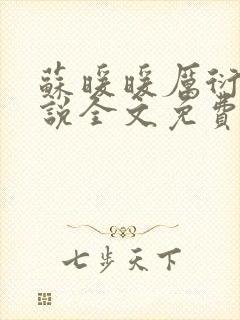 蘇暖暖厲衍
說全文免費
七步天下